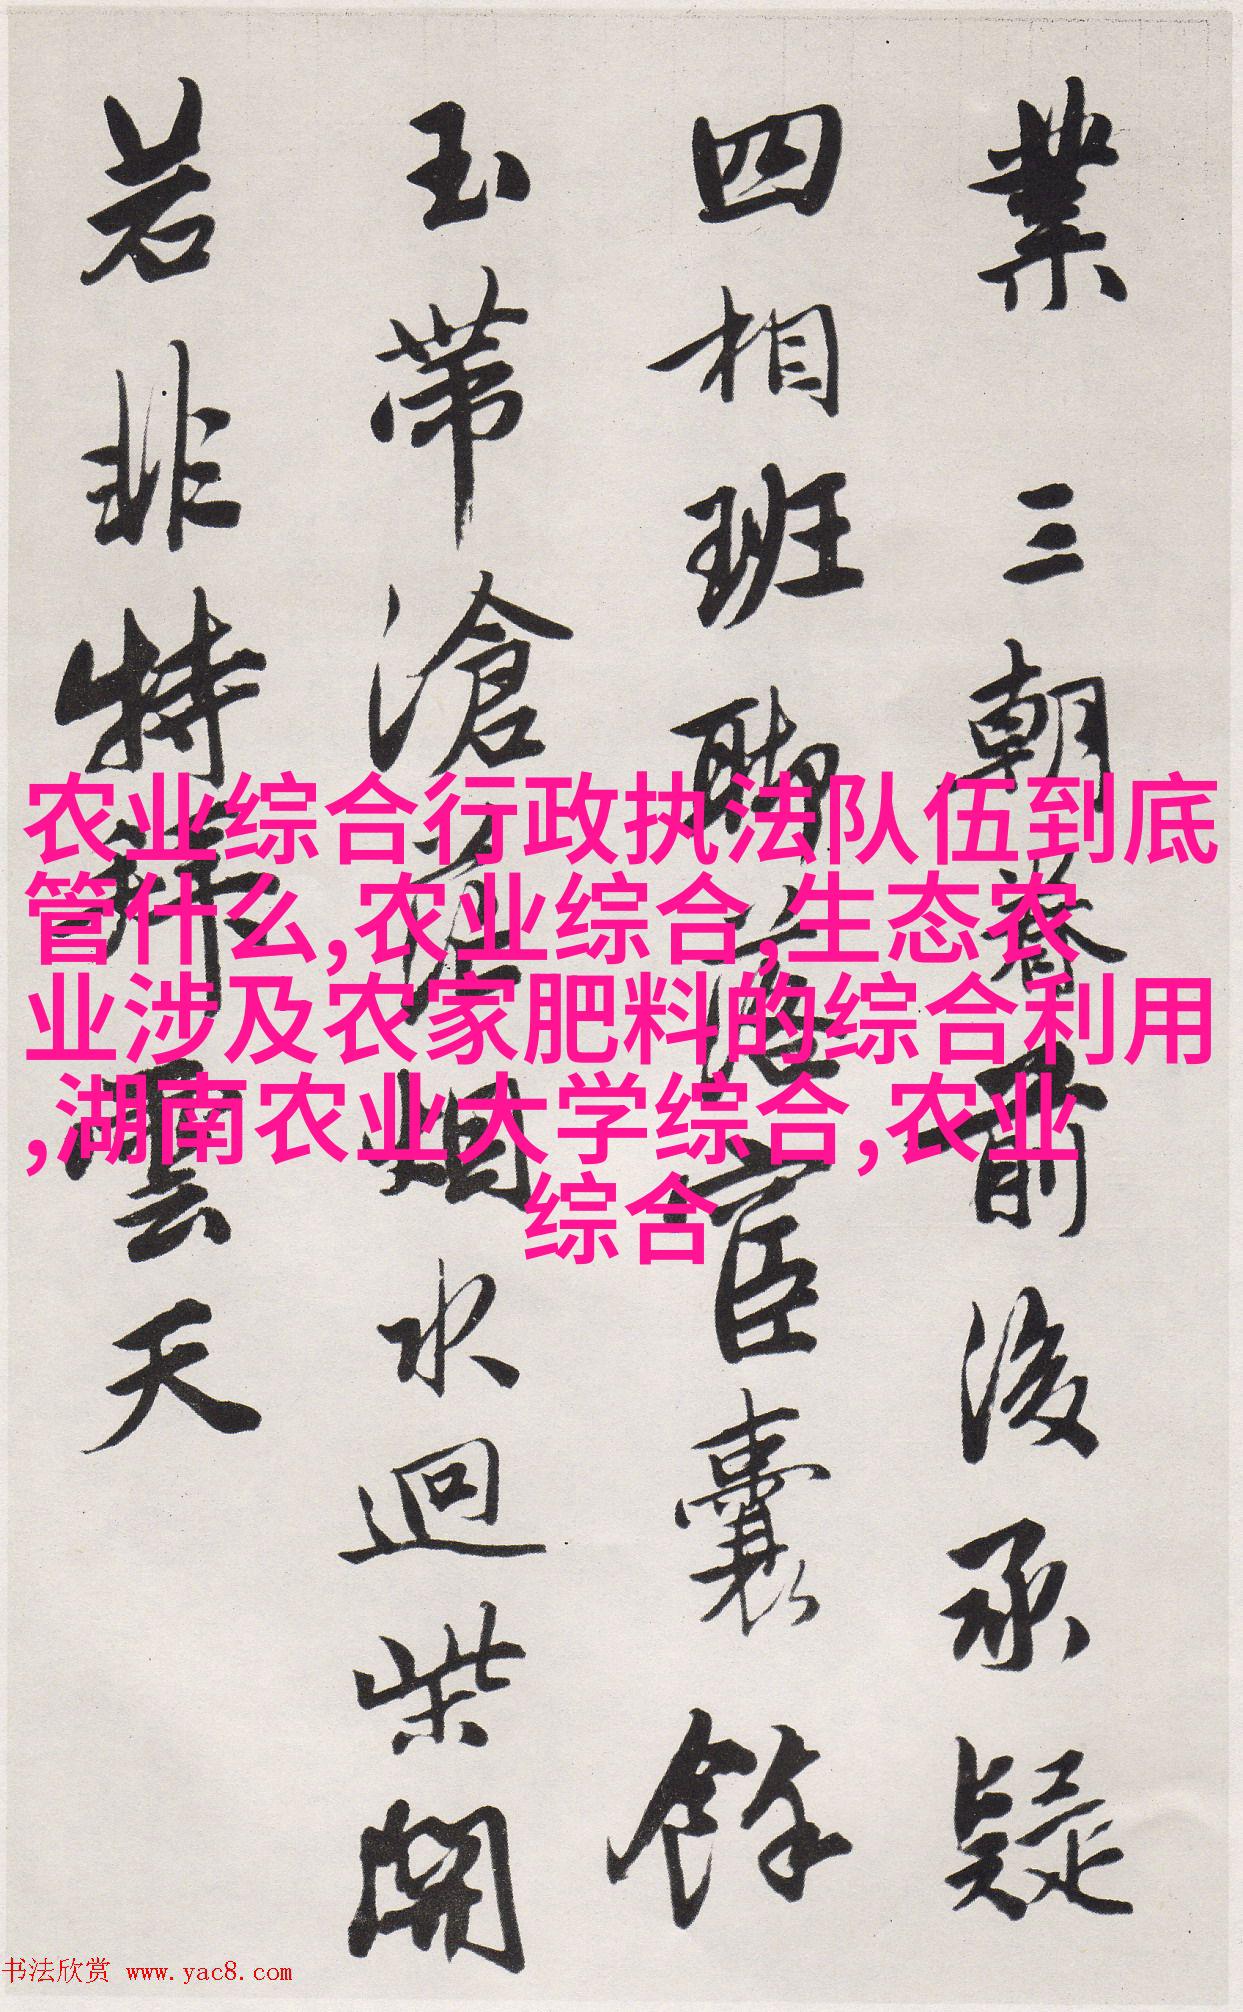 業三朝眷前後承疑
四相班聯宦囊餘
玉帶滄茫烟水迴柴開
若非特雲天
农业综合行政执法队伍到底
管什么,农业综合,生态农
业涉及农家肥料的综合利用
,湖南农业大学综合,农业
综合
书法欣赏 www.yac8.com